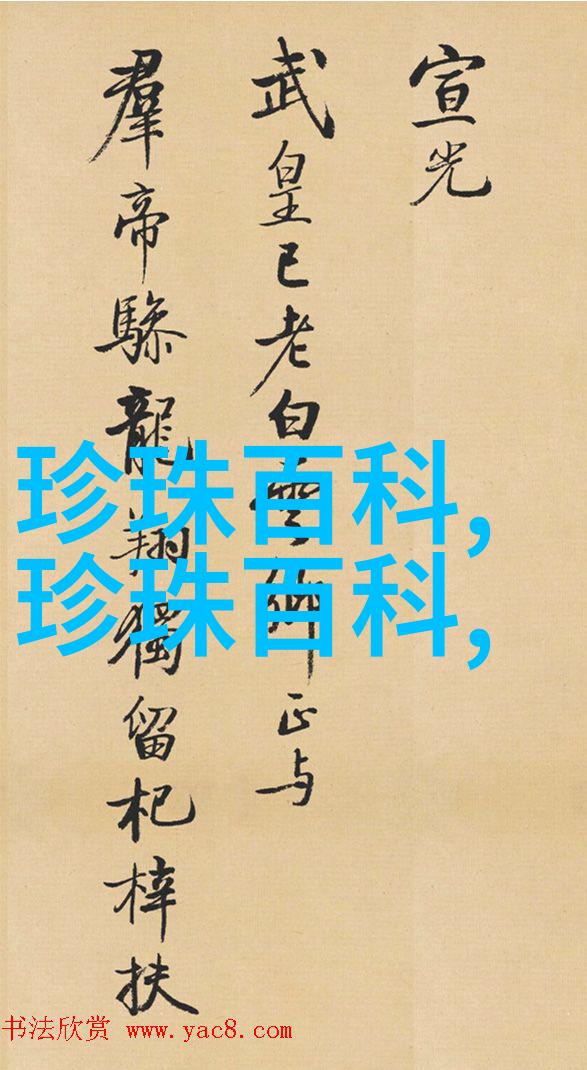 宣光
武皇已老白雲鄉正与
羣帝驂龍翔獨留杞梓扶
珍珠百科,
珍珠百科,
书法欣赏 www.yac8.com